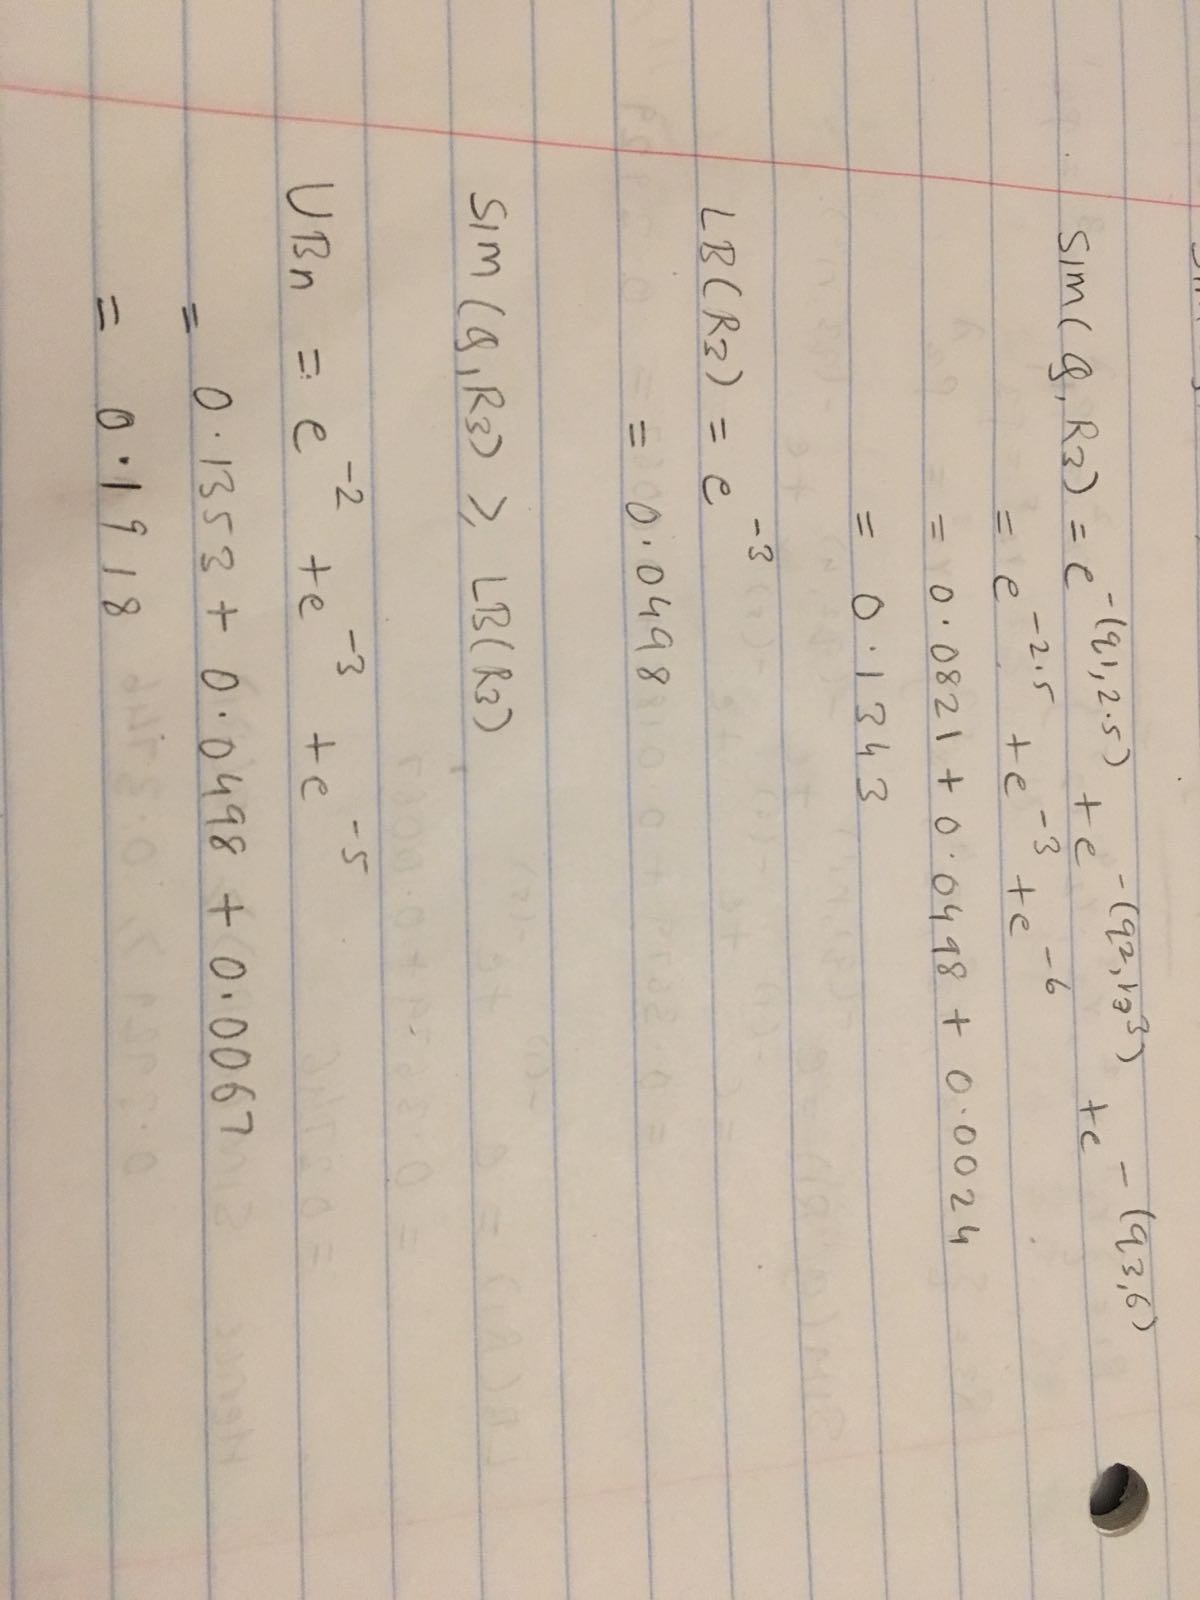 Sim(q, R3) = e^-(q1, 2.5) + e^-(q2, 3) + e^-(q3, 6)
= e^-2.5 + e^-3 + e^-6
= 0.0821 + 0.0498 + 0.0024
= 0.1343
LB(R3) = e^-3
= 0.0498
Sim(q, R3) ≥ LB(R3)
UBn = e^-2 + e^-3 + e^-5
= 0.1353 + 0.0498 + 0.0067
= 0.1918